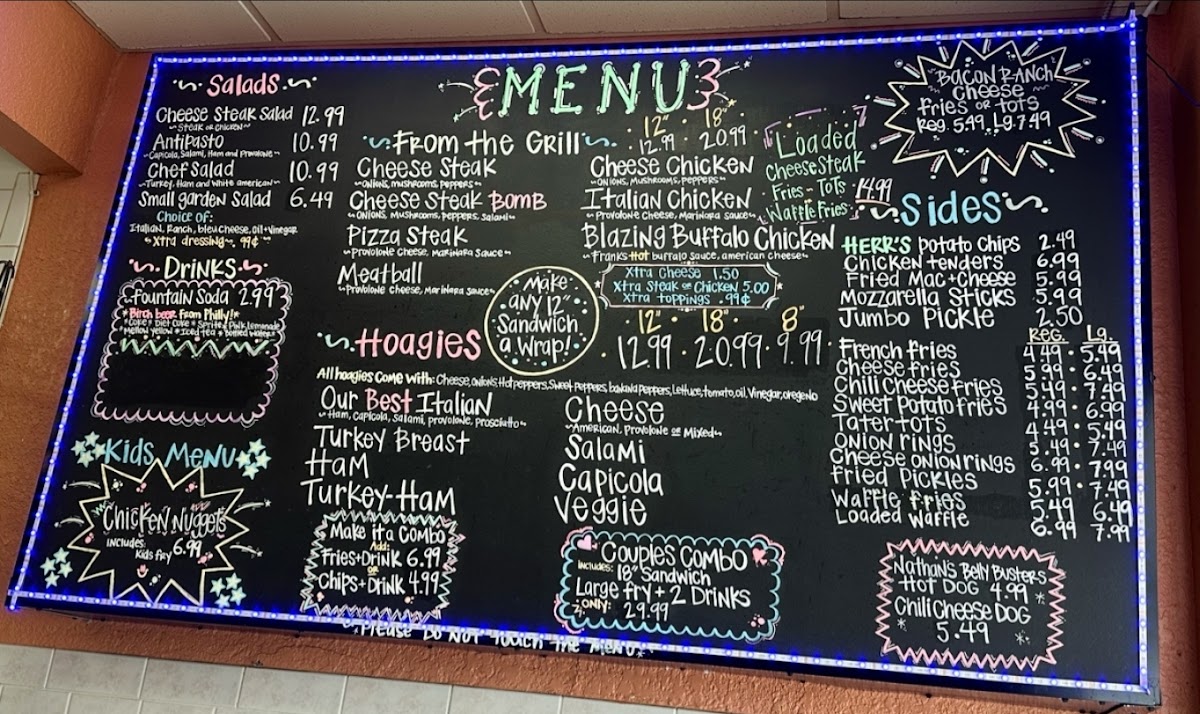 MENU
Salads
Cheese Steak Salad 12.99
~Steak or Chicken~
Antipasto 10.99
~Capicola, Salami, Ham and Provolone~
Chef Salad 10.99
~Turkey, Ham and White american~
Small garden Salad 6.49
Choice of:
Italian, Ranch, bleu Cheese, oil + Vinegar
~Xtra dressing~ .99¢
Drinks
fountain Soda 2.99
*Birch beer From Philly!*
*Coke * Diet Coke * Sprite * Pink Lemonade
Mellow yellow * Iced tea * Bottled Water*
Kids Menu
Chicken Nuggets
INCLUDES: 6.99
Kids fry
From the Grill
12" 18"
12.99 · 20.99
Cheese Steak
~Onions, Mushrooms, Peppers~
Cheese Steak BOMB
~Onions, Mushrooms, Peppers, Salami~
Pizza Steak
~Provolone Cheese, Marinara Sauce~
Meatball
~Provolone Cheese, Marinara Sauce~
Cheese Chicken
~Onions, Mushrooms, Peppers~
Italian Chicken
~Provolone Cheese, Marinara Sauce~
Blazing Buffalo Chicken
~Franks Hot buffalo Sauce, american Cheese~
Xtra Cheese 1.50
Xtra Steak or Chicken 5.00
Xtra toppings .99¢
Make
any 12"
Sandwich
a Wrap!
Hoagies
12" · 18" · 8"
12.99 · 20.99 · 9.99
All hoagies Come With: Cheese, onions, Hot peppers, Sweet peppers, banana Peppers, Lettuce, tomato, oil, Vinegar, oregeno
Our Best Italian
~Ham, Capicola, Salami, provolone, Prosciutto~
Turkey Breast
Ham
Turkey-Ham
Cheese
~American, Provolone or Mixed~
Salami
Capicola
Veggie
Make it a Combo
Add:
Fries + Drink 6.99
or
Chips + Drink 4.99
Couples Combo
INCLUDES: 18" Sandwich
Large fry + 2 Drinks
ONLY: 29.99
Loaded
Cheese Steak
Fries - Tots
Waffle Fries
14.99
Bacon Ranch
Cheese
fries or tots
Reg. 5.49 Lg. 7.49
Sides
HERR'S potato Chips 2.49
Chicken tenders 6.99
Fried Mac + Cheese 5.99
Mozzarella Sticks 5.99
Jumbo Pickle 2.50
Reg. Lg.
French fries 4.49 · 5.49
Cheese fries 5.99 · 6.49
Chili Cheese fries 5.49 · 7.49
Sweet Potato fries 4.99 · 6.99
Tater tots 4.49 · 5.49
Onion rings 5.49 · 7.49
Cheese Onion rings 6.99 · 7.99
fried Pickles 5.99 · 7.49
Waffle fries 5.49 6.49
Loaded Waffle 6.99 7.99
Nathan's Belly Busters
Hot Dog 4.99
Chili Cheese Dog
5.49
Please Do Not touch the Menu